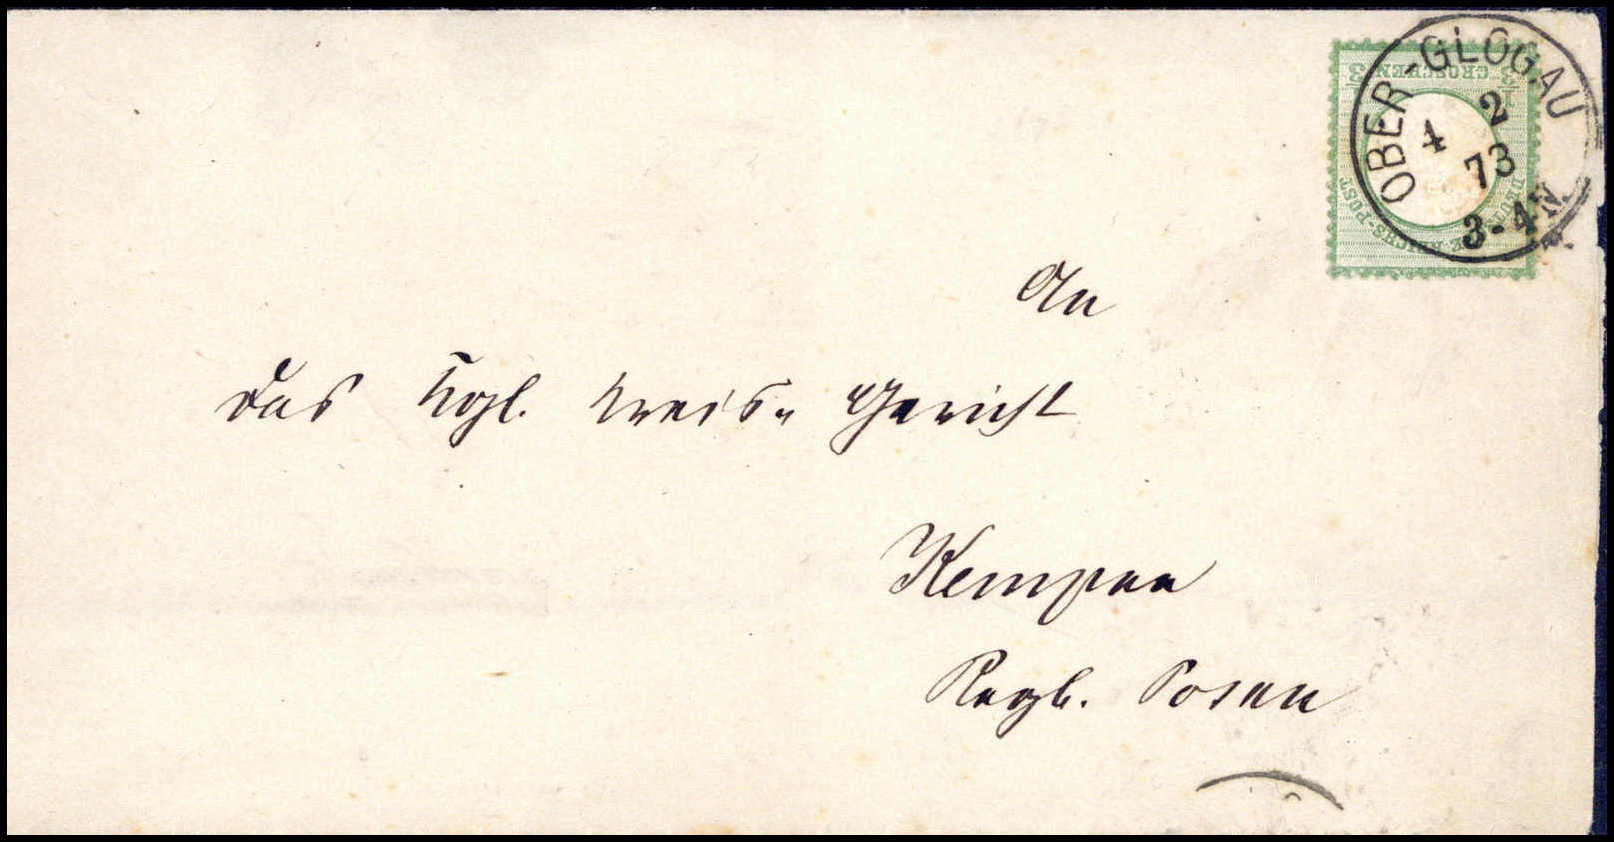 OBER-GLOGAU
4 2
73
3-4N.
⅓ GROSCHEN ⅓
DEUTSCHE REICHS-POST
An
das Kgl. Kreis-Gericht
Kempen
Regb. Posen